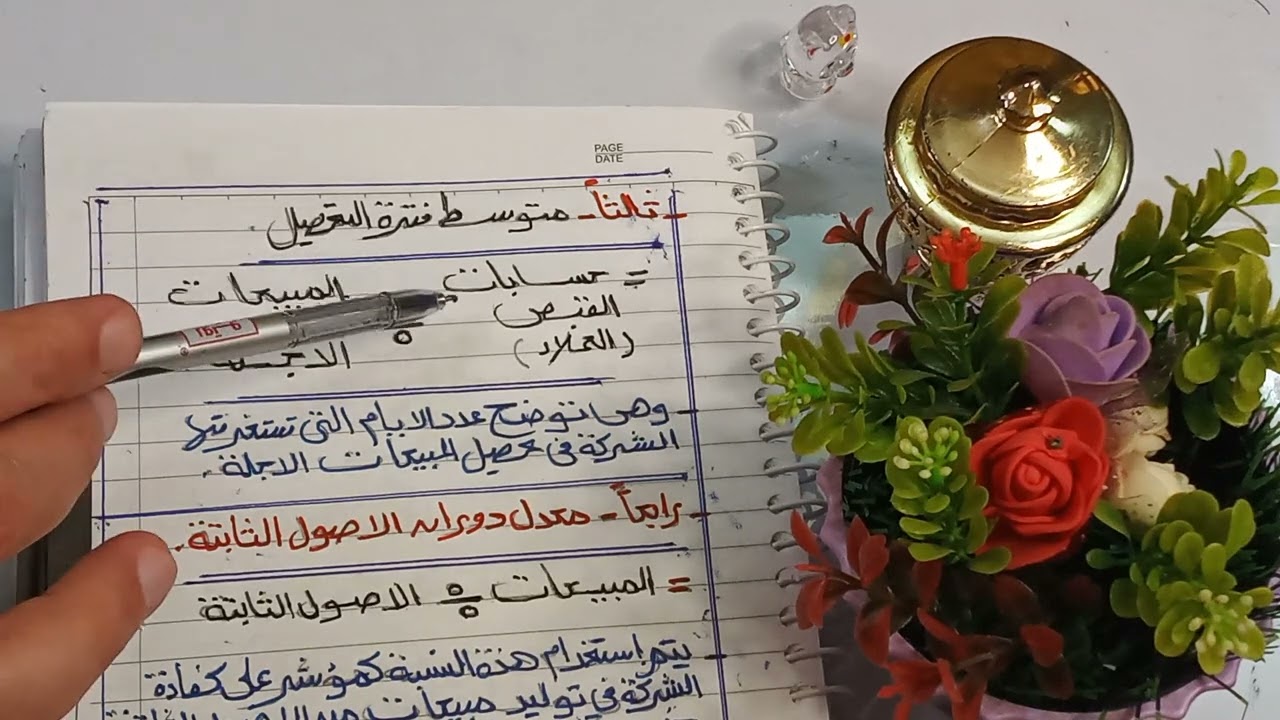 PAGE
DATE
ثالثاً - متوسط فترة التحصيل.
= حسابات ÷ المبيعات
القبض
(العملاء) الاجـ
- وهى توضح عدد الايام التى تستغرقها
الشركة فى تحصيل المبيعات الاجلة.
- رابعاً - معدل دوران الاصول الثابتة.
= المبيعات ÷ الاصول الثابتة
- يتم إستخدام هذة النسبة كمؤشر على كفاءة
الشركة فى توليد مبيعات من الاصول الثابتة